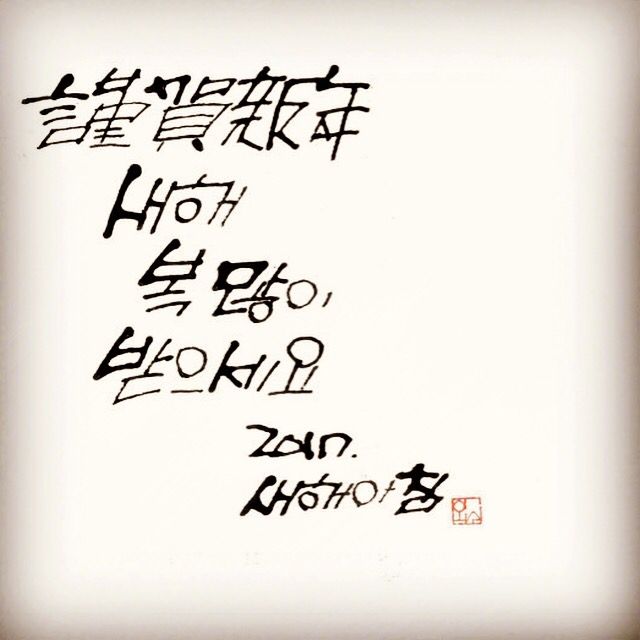 謹賀新年
새해
복 많이
받으세요
2017.
새해아침